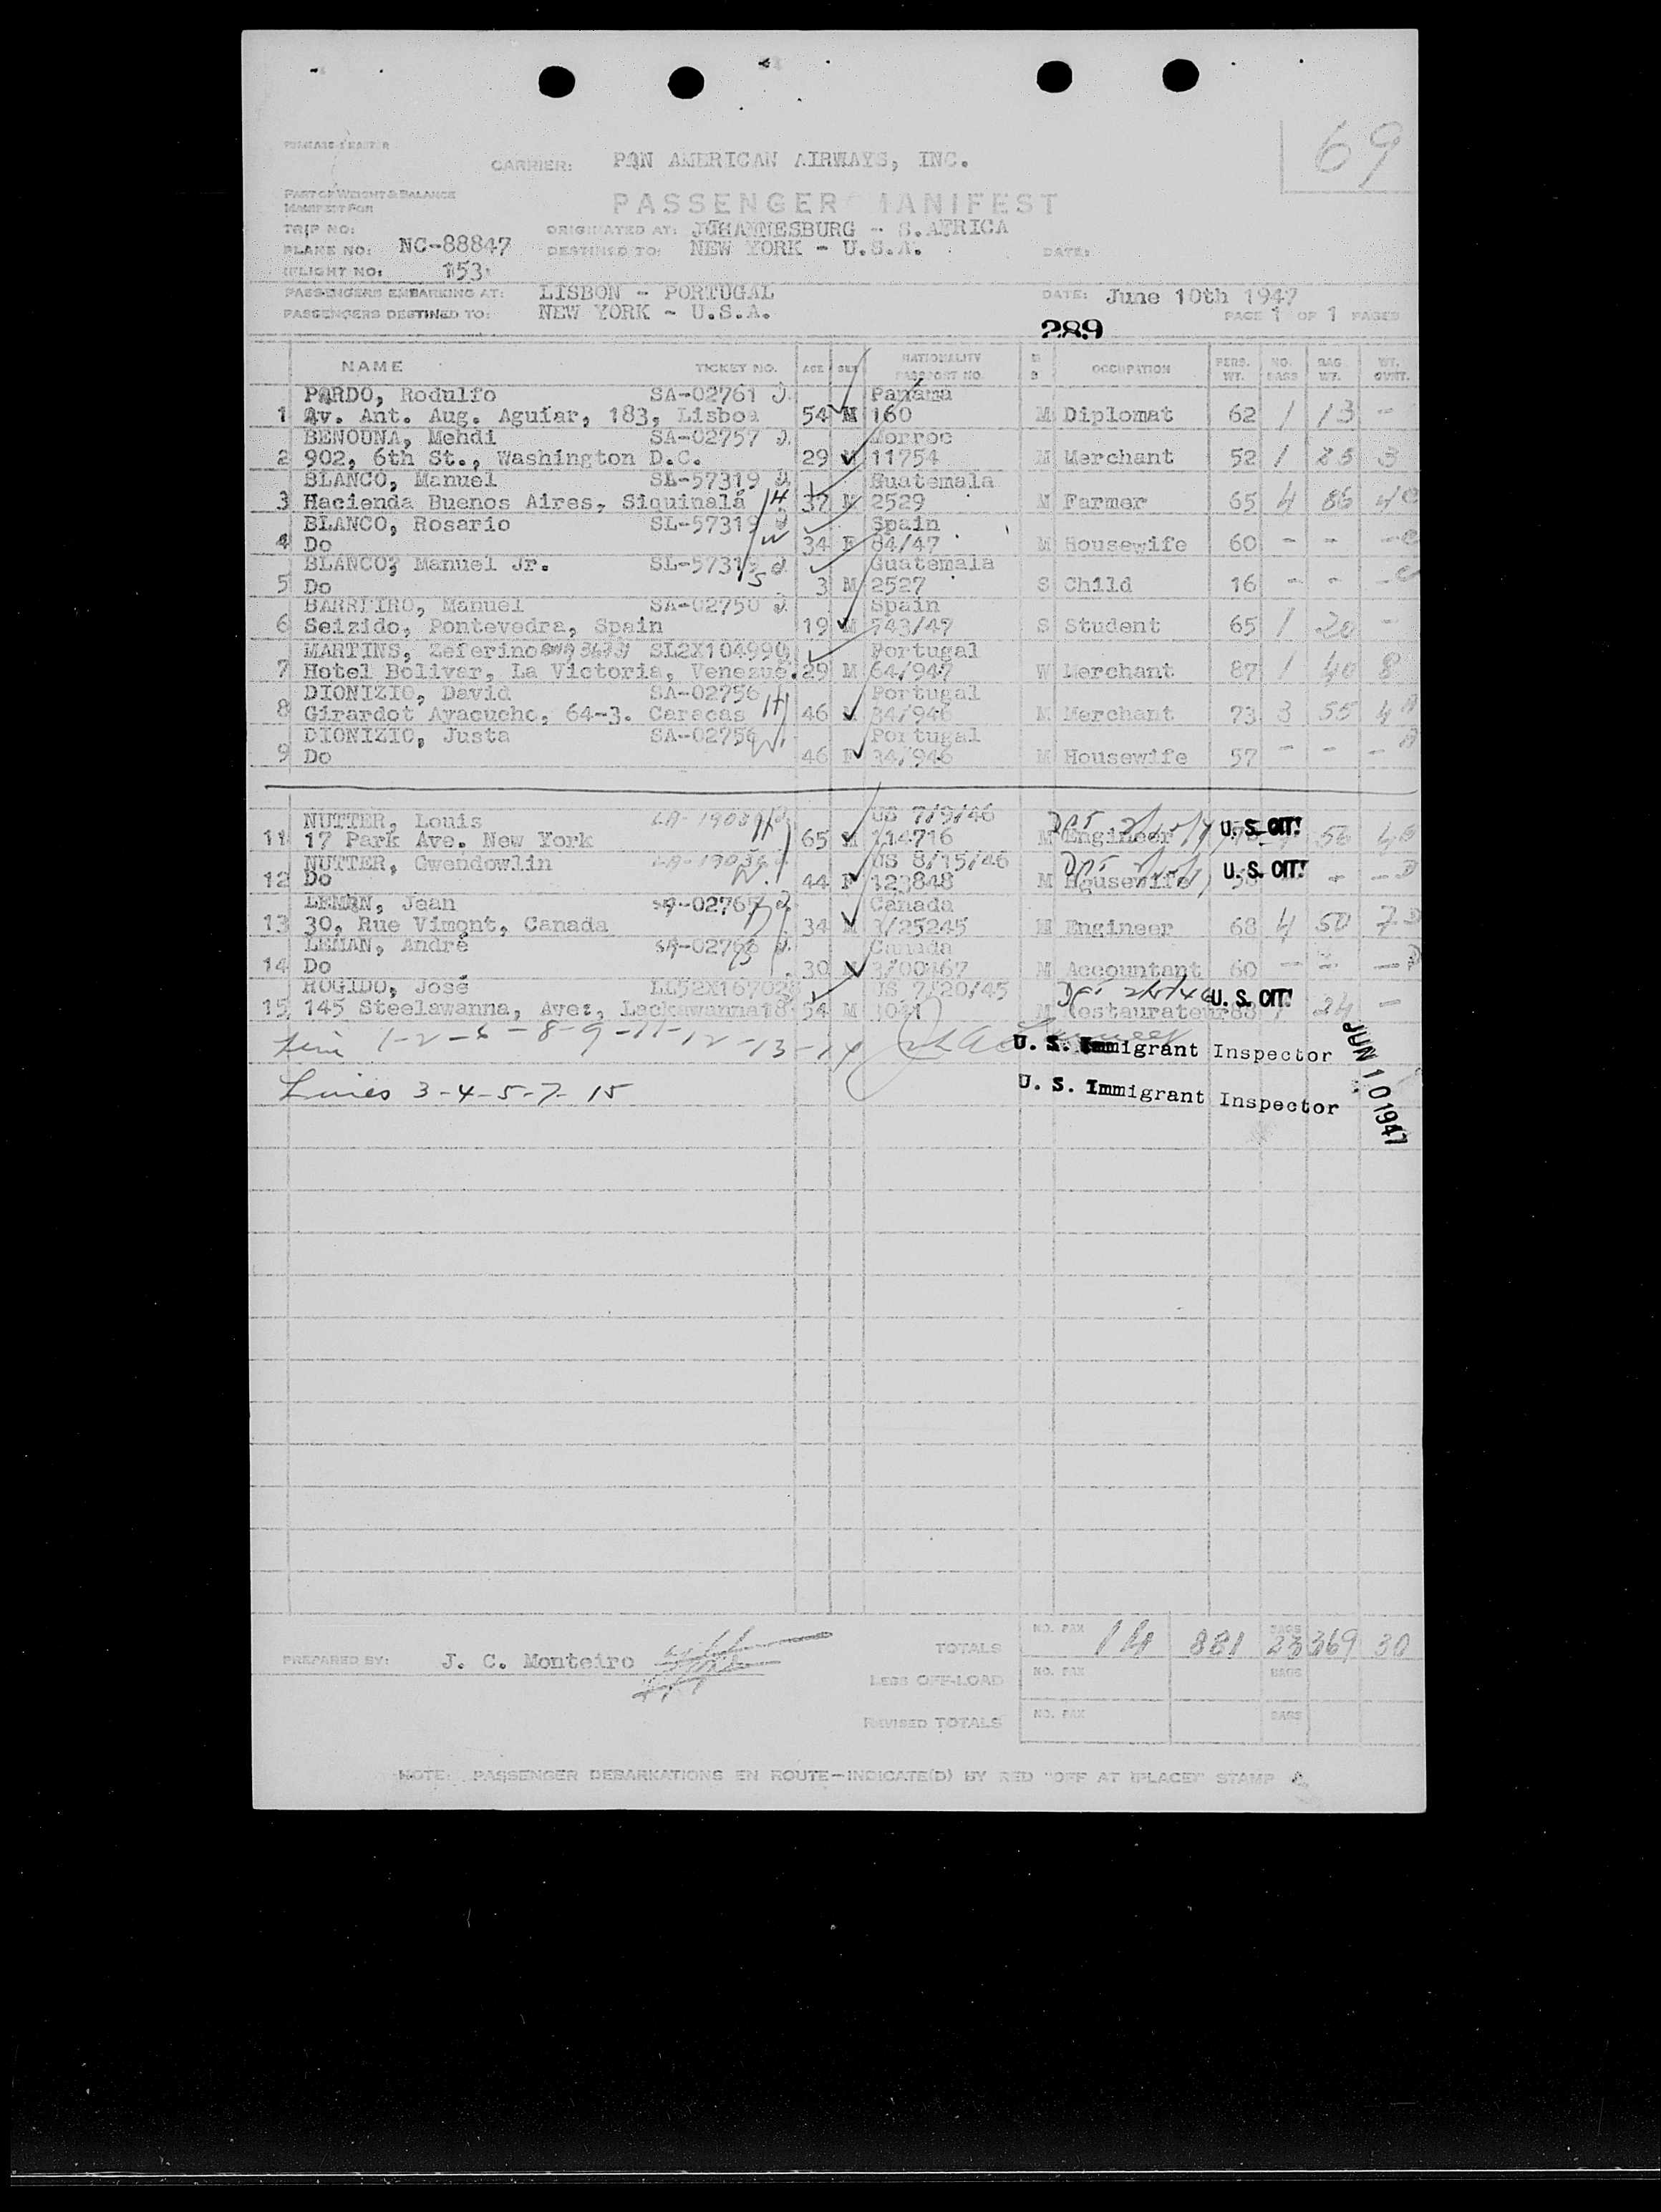 69
CARRIER: PAN AMERICAN AIRWAYS, INC.
PART OF WEIGHT & BALANCE
MANIFEST FOR
PASSENGER MANIFEST
TRIP NO: ORIGINATED AT: JOHANNESBURG - S.AFRICA
PLANE NO: NC-88847 DESTINED TO: NEW YORK - U.S.A. DATE:
FLIGHT NO: 153
PASSENGERS EMBARKING AT: LISBON - PORTUGAL DATE: June 10th 1947
PASSENGERS DESTINED TO: NEW YORK - U.S.A. PAGE 1 OF 1 PAGES
289
NAME TICKET NO. AGE SEX NATIONALITY PASSPORT NO. M S OCCUPATION PERS. WT. NO. BAGS BAG WT. WT. OVWT.
PARDO, Rodulfo SA-02761 Panama
1 Av. Ant. Aug. Aguiar, 183, Lisboa 54 M 160 M Diplomat 62 1 13 -
BENOUNA, Mehdi SA-02757 Morroc
2 902, 6th St., Washington D.C. 29 M 11754 M Merchant 52 1 3
BLANCO, Manuel SL-57319 Guatemala
3 Hacienda Buenos Aires, Siquinalá H 37 M 2529 M Farmer 65 4 86
BLANCO, Rosario SL-57319 Spain
4 Do W 34 F 84/47 M Housewife 60 - - -
BLANCO, Manuel Jr. SL-57319 Guatemala
5 Do S 3 M 2527 S Child 16 - - -
BARREIRO, Manuel SA-02750 Spain
6 Seizido, Pontevedra, Spain 19 M 543/47 S Student 65 1 20 -
MARTINS, Zeferino SL2X104990 Portugal
7 Hotel Bolivar, La Victoria, Venezue. 29 M 64/947 W Merchant 87 1 40 8
DIONIZIO, David SA-02756 Portugal
8 Girardot Ayacucho, 64-3. Caracas H 46 M 34/946 M Merchant 73 3 55 4
DIONIZIO, Justa SA-02756 Portugal
9 Do W. 46 F 34/946 M Housewife 57 - - -
NUTTER, Louis US 7/9/46
11 17 Park Ave. New York H 65 M 114716 M Engineer U.S. CIT.
NUTTER, Gwendowlin US 8/15/46
12 Do W. 44 F 123848 M Housewife 58 U.S. CIT.
LEMAN, Jean SA-02767 Canada
13 30, Rue Vimont, Canada 34 M 3/25245 M Engineer 68 4 50 7
LEMAN, André SA-02766 Canada
14 Do 30 M M Accountant 60 - - -
ROGIDO, José LL52X167028 US 7/20/45
15 145 Steelawanna, Ave., Lackawanna18 54 M M Restaurateur U.S. CIT. 24 -
Line 1-2-6-8-9-11-12-13-14 U. S. Immigrant Inspector
Lines 3-4-5-7-15 U. S. Immigrant Inspector
JUN 10 1947
TOTALS NO. PAX 14 881 BAGS 23 369 30
PREPARED BY: J. C. Monteiro
LESS OFF-LOAD NO. PAX BAGS
REVISED TOTALS NO. PAX BAGS
NOTE: PASSENGER DEBARKATIONS EN ROUTE—INDICATE(D) BY RED "OFF AT (PLACE)" STAMP